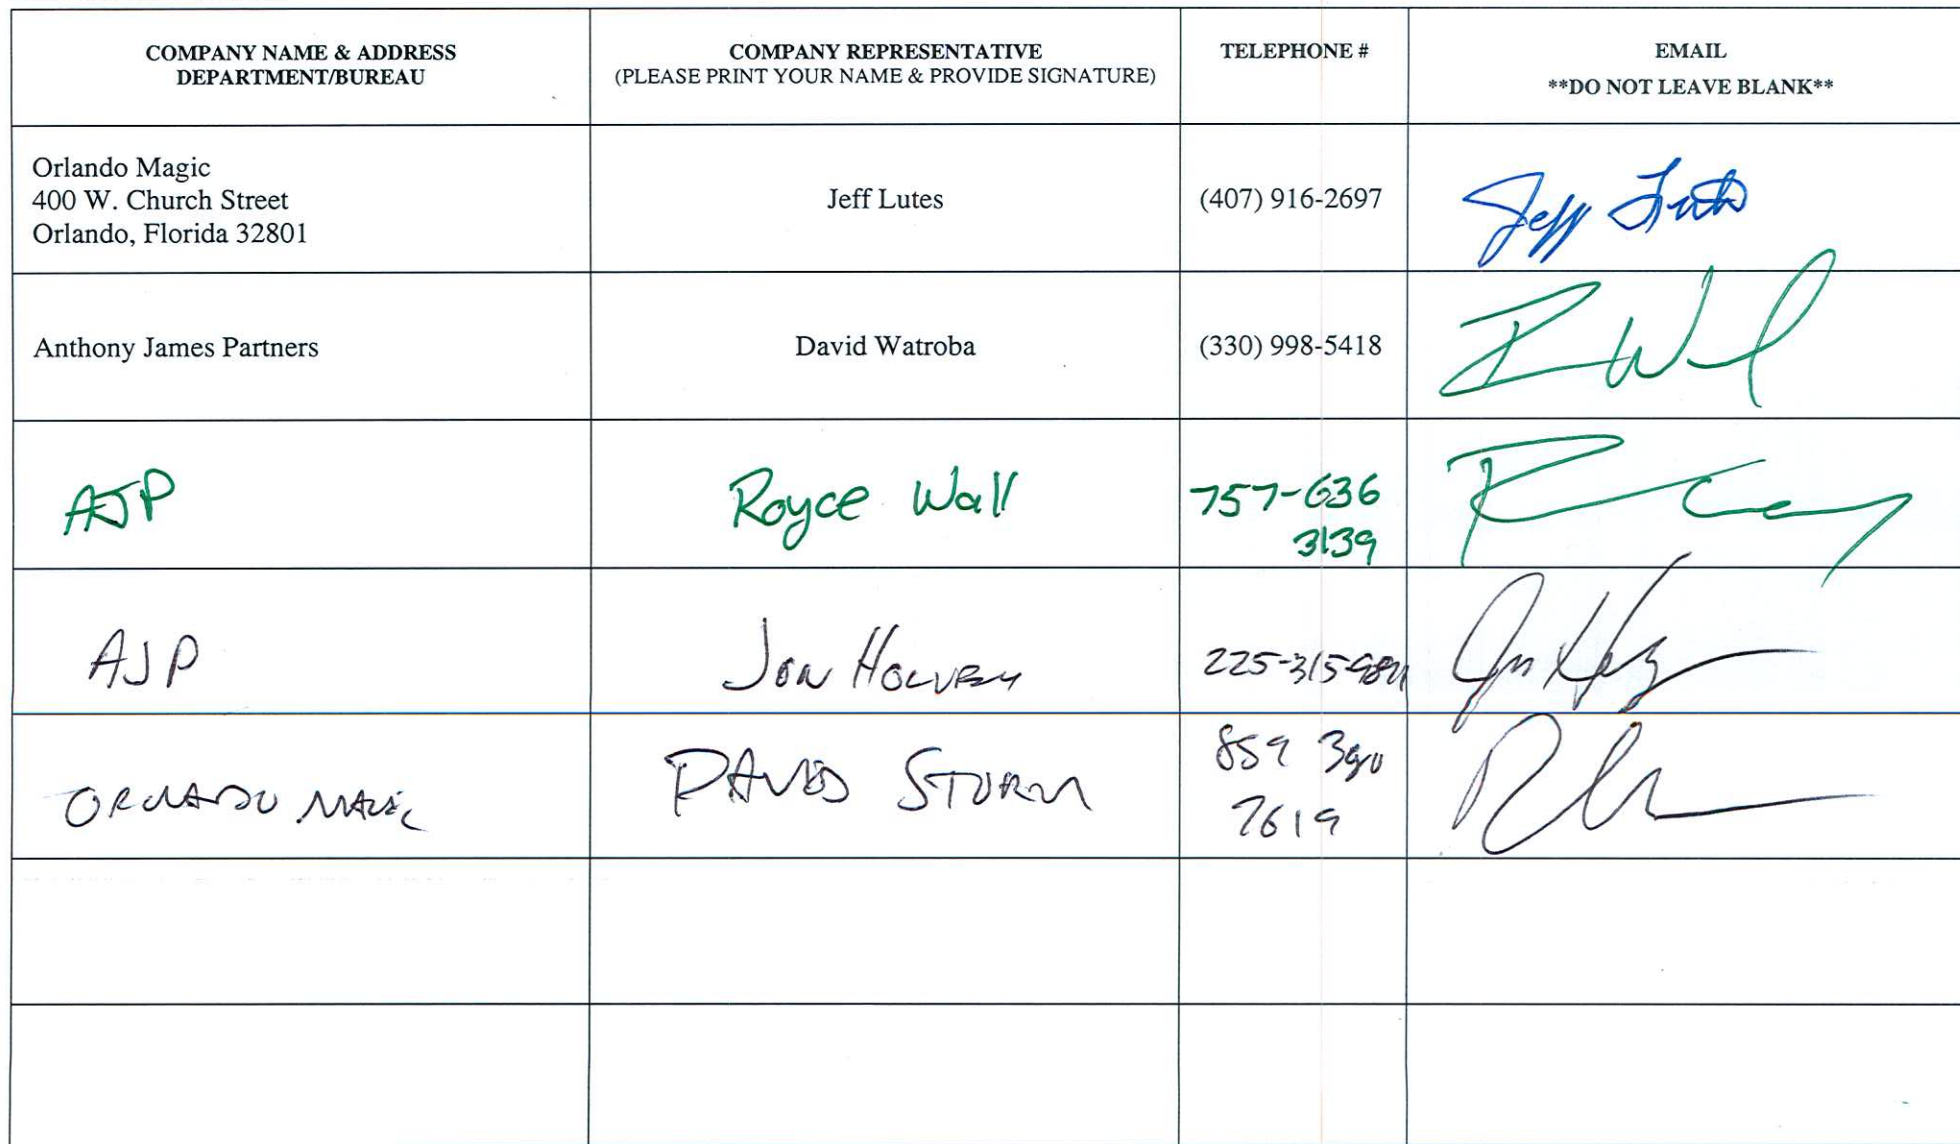 COMPANY NAME & ADDRESS
DEPARTMENT/BUREAU
COMPANY REPRESENTATIVE
(PLEASE PRINT YOUR NAME & PROVIDE SIGNATURE)
TELEPHONE #
EMAIL
**DO NOT LEAVE BLANK**
Orlando Magic
400 W. Church Street
Orlando, Florida 32801
Jeff Lutes
(407) 916-2697
Jeff Lutes
Anthony James Partners
David Watroba
(330) 998-5418
AJP
Royce Wall
757-636
3139
AJP
Jon
225-315
ORLANDO MAGIC
DAVID STURM
859
7619